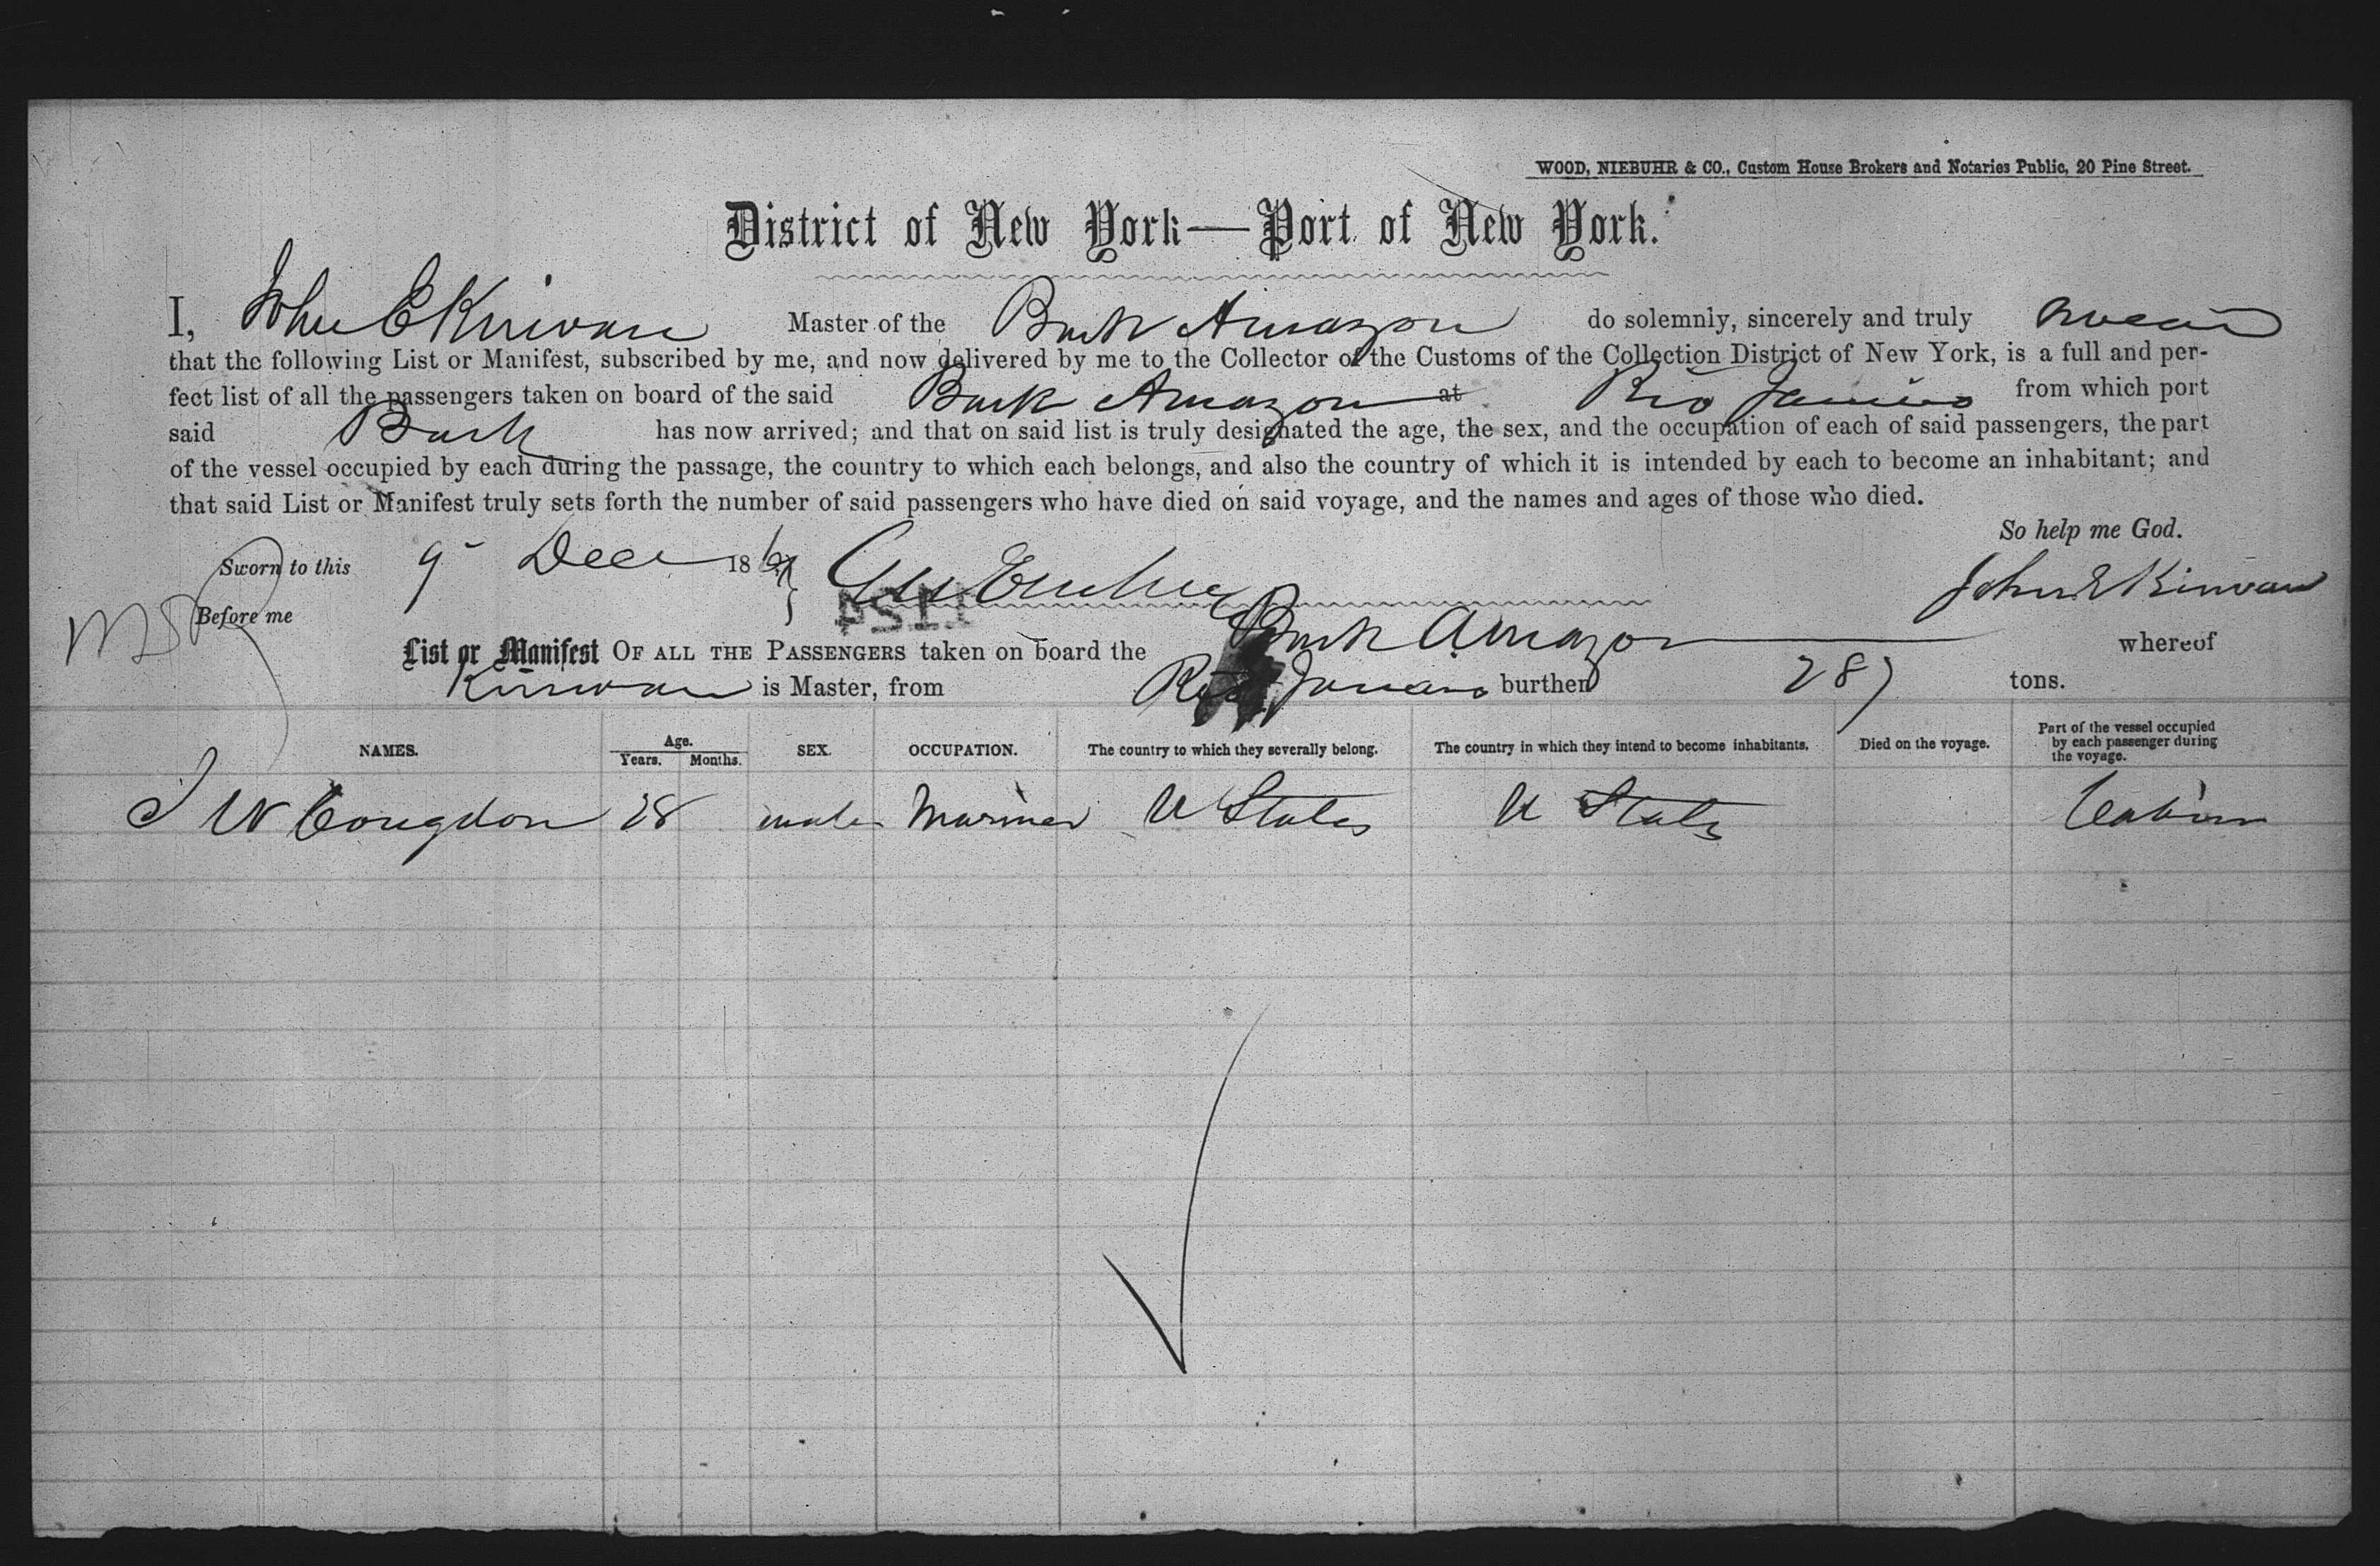 WOOD, NIEBUHR & CO., Custom House Brokers and Notaries Public, 20 Pine Street.
District of New York—Port of New York.
I, John E Kirwan Master of the Bark Amazon do solemnly, sincerely and truly swear
that the following List or Manifest, subscribed by me, and now delivered by me to the Collector of the Customs of the Collection District of New York, is a full and per-
fect list of all the passengers taken on board of the said Bark Amazon at Rio Janeiro from which port
said Bark has now arrived; and that on said list is truly designated the age, the sex, and the occupation of each of said passengers, the part
of the vessel occupied by each during the passage, the country to which each belongs, and also the country of which it is intended by each to become an inhabitant; and
that said List or Manifest truly sets forth the number of said passengers who have died on said voyage, and the names and ages of those who died.
So help me God.
Sworn to this 9 Dec 186 John E Kirwan
Before me
1154
List or Manifest OF ALL THE PASSENGERS taken on board the Bark Amazon whereof
Kirwan is Master, from Rio Janeiro burthen 287 tons.
NAMES. Age. Years. Months. SEX. OCCUPATION. The country to which they severally belong. The country in which they intend to become inhabitants. Died on the voyage. Part of the vessel occupied by each passenger during the voyage.
J W Congdon 28 male Mariner U States U States Cabin